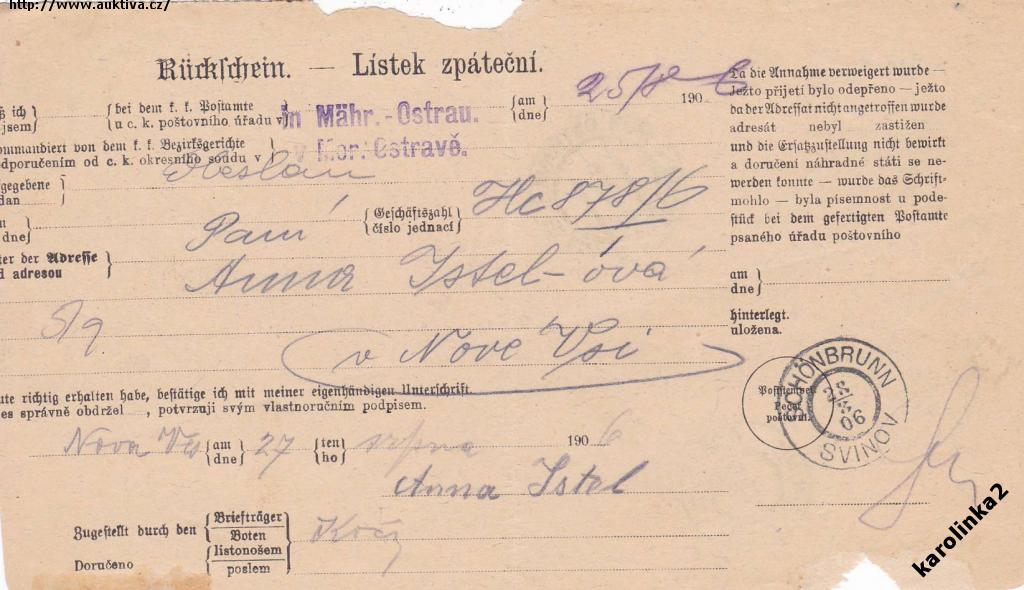 http://www.auktiva.cz/
Rückschein. — Lístek zpáteční.
ß ich bei dem k. k. Postamte in Mähr.-Ostrau. am 25/8 1906
jsem u c. k. poštovního úřadu v v Mor. Ostravě. dne
ommandiert von dem k. k. Bezirksgerichte
odporučením od c. k. okresního soudu v
gegebene
dan
Geschäftszahl Hc 878/6
dne číslo jednací
Paní
ter der Adresse
d adresou
Anna Istel-óvá
5/9
v Nové Vsi
ute richtig erhalten habe, bestätige ich mit meiner eigenhändigen Unterschrift.
es správně obdržel , potvrzuji svým vlastnoručním podpisem.
Nová Ves am 27 ten srpna 1906
dne ho
Anna Istel
Zugestellt durch den Briefträger
Boten
Doručeno listonošem
poslem
Da die Annahme verweigert wurde —
Ježto přijetí bylo odepřeno — ježto
da der Adressat nicht angetroffen wurde
adresát nebyl zastižen
und die Ersatzzustellung nicht bewirkt
a doručení náhradné státi se ne-
werden konnte — wurde das Schrift-
mohlo — byla písemnost u pode-
stück bei dem gefertigten Postamte
psaného úřadu poštovního
am
dne
hinterlegt.
uložena.
Poststempel
Pečeť
poštovní.
SCHÖNBRUNN
06
SVINOV
karolinka2